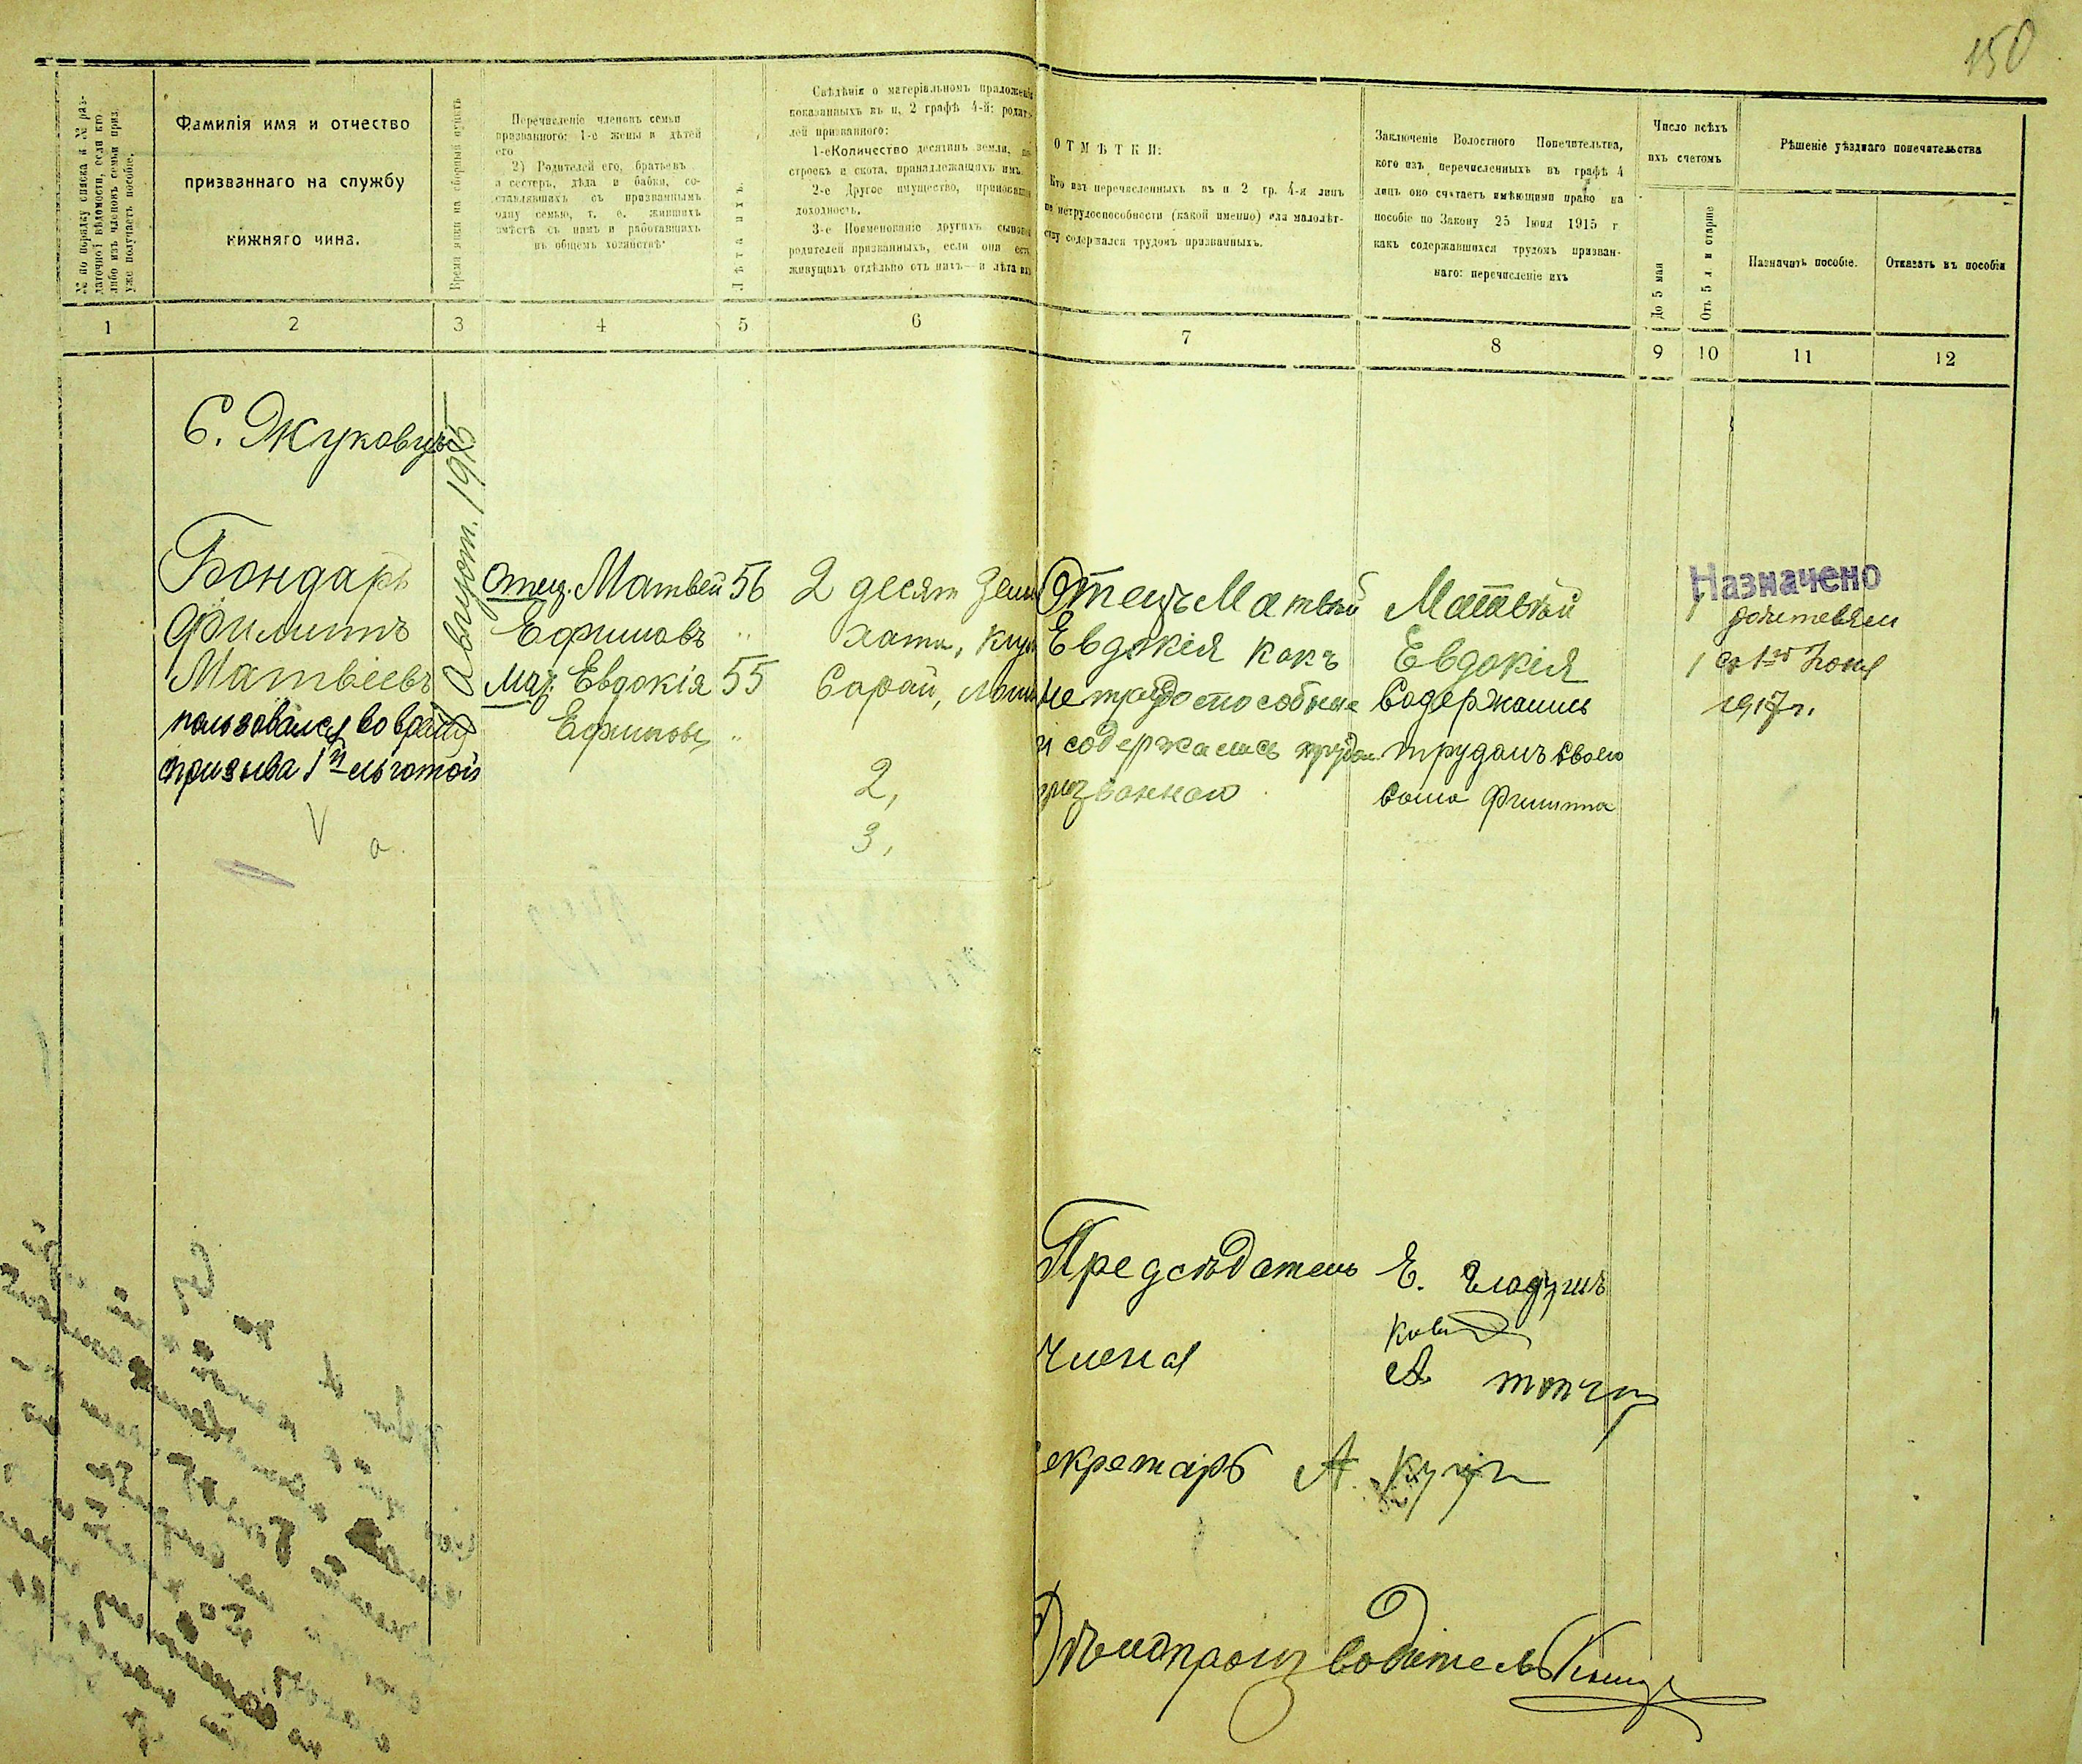 150
№ по порядку списка и № раз-
даточной вѣдомости, если кто
либо изъ членовъ семьи приз.
уже получаетъ пособіе.
Фамилія имя и отчество
призваннаго на службу
нижняго чина.
Время явки на сборный пунктъ
Перечисленіе членовъ семьи
призваннаго: 1-е жены и дѣтей
его
2) Родителей его, братьевъ
и сестеръ, дѣда и бабки, со-
ставлявшихъ съ призваннымъ
одну семью, т. е. жившихъ
вмѣстѣ съ нимъ и работавшихъ
въ общемъ хозяйствѣ.
Лѣта ихъ.
Свѣдѣнія о матеріальномъ положеніи
показанныхъ въ п. 2 графѣ 4-й: родите
лей призваннаго:
1-е Количество десятинъ земли, по
строекъ и скота, принадлежащихъ имъ.
2-е Другое имущество, приносящее
доходность.
3-е Поименованіе другихъ сыновей
родителей призванныхъ, если они есть
живущихъ отдѣльно отъ нихъ—и лѣта ихъ
ОТМѢТКИ:
Кто изъ перечисленныхъ въ п. 2 гр. 4-я лицъ
по нетрудоспособности (какой именно) или малолѣт-
ству содержался трудомъ призванныхъ.
Заключеніе Волостного Попечительства,
кого изъ перечисленныхъ въ графѣ 4
лицъ оно считаетъ имѣющими право на
пособіе по Закону 25 Іюня 1915 г
какъ содержавшихся трудомъ призван-
наго: перечисленіе ихъ
Число всѣхъ
ихъ счетомъ
До 5 мая
Отъ 5 л. и старше
Рѣшеніе уѣзднаго попечительства
Назначить пособіе.
Отказать въ пособіи
1 2 3 4 5 6 7 8 9 10 11 12
С. Жуковцы
Август. 1915
Бондарь
Филиппъ
Матвіевъ
пользовался во время
призыва 1й льготой
Отец. Матвей 56
Ефимовъ "
Мат. Евдокія 55
Ефимовы "
2 десят Земл
хата,
Сарай,
2,
3,
Отецъ Матвѣй
Евдокія какъ
не трудоспособные
и содержались трудом
призваннаго
Матвѣй
Евдокія
Содержались
трудомъ своего
сына Филиппа
1
1
Назначено
родителям
съ 1го Іюня
1917г.
Предсѣдатель Е.
Члены
А
екретарь А.
Дѣлопроизводитель